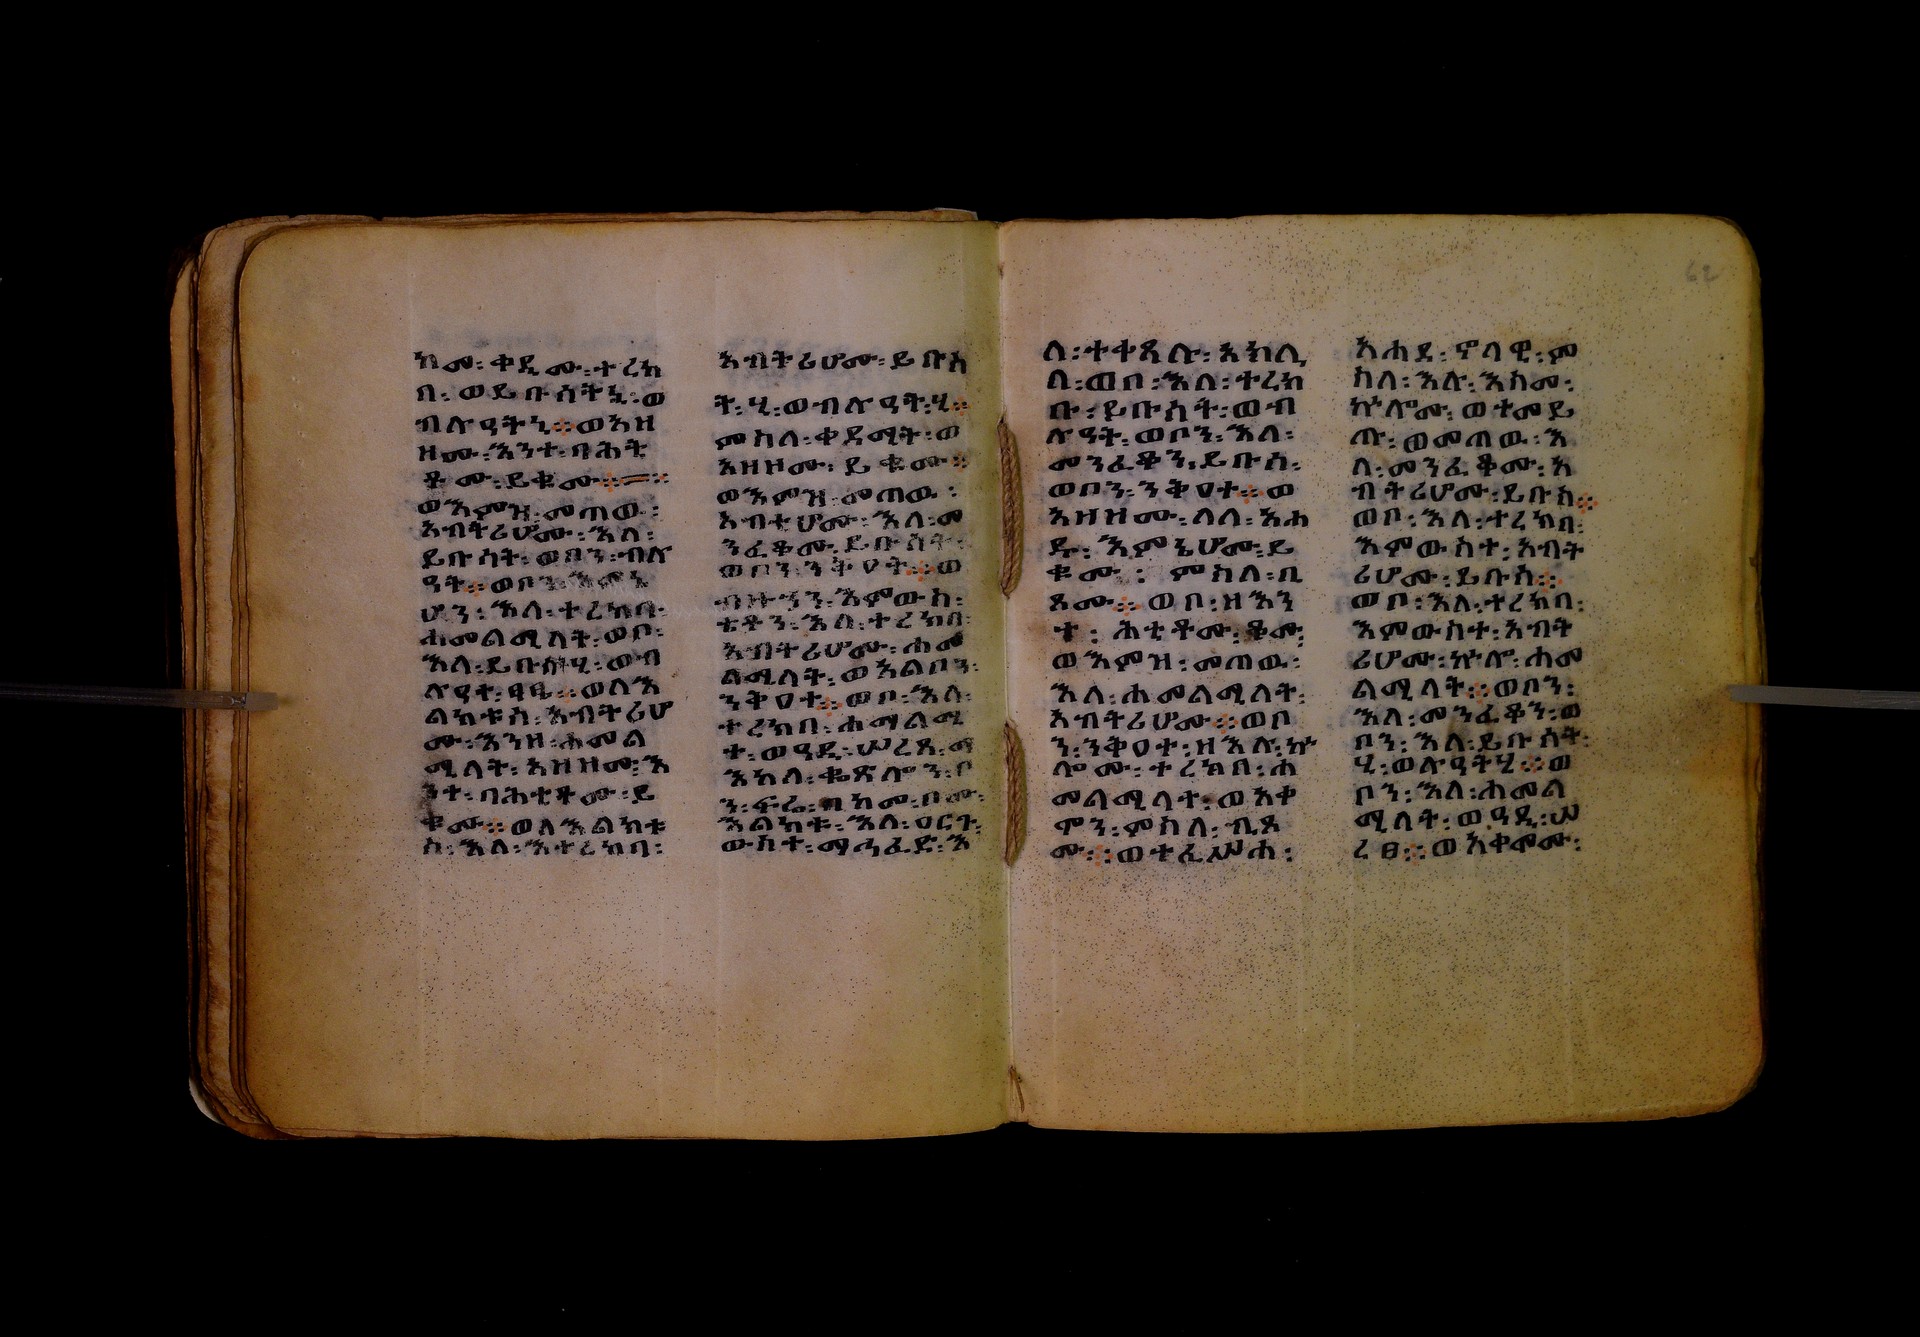 ከመ፡ቀዲሙ፡ተረክ
በ፡ወይቡስትኒ፡ወ
ብሉዓትኒ፡፡ወአዘ
ዘሙ፡እንተ፡ባሕት
ቶሙ፡ይቁሙ፡፡
ወእምዝ፡መጠወ፡
አብትሪሆሙ፡እለ፡
ይቡሳት፡ወቦን፡ብሉ
ዓት፡፡ወቦን፡
ሆን፡እለ፡ተረክቡ፡
ሐመልሚላት፡ወቦ፡
እለ፡ይቡሳት፡ሂ፡ወብ
ሉዓት፡ ፡፡ወለእ
ልክቱሰ፡አብትሪሆ
ሙ፡እንዘ፡ሐመል
ሚላት፡አዘዘሙ፡እ
ንተ፡ባሕቲቶሙ፡ይ
ቁሙ፡፡ወለእልክቱ
ሰ፡እለ፡እተረክበ፡
አብትሪሆሙ፡ይቡሳ
ት፡ሂ፡ወብሉዓት፡ሂ፡፡
ምስለ፡ቀዳሚት፡ወ
አዘዘሙ፡ይቁሙ፡፡
ወእምዝ፡መጠወ፡
አብቲሆሙ፡እለ፡መ
ንፈቆሙ፡ይቡሳት፡
ወቦን፡ንቅዐት፡፡ወ
ብዙኅን፡እምውስ፡
ቴቶን፡እለ፡ተረክበ፡
አብትሪሆሙ፡ሐመ
ልሚላት፡ወአልቦን፡
ንቅዐተ፡፡ወቦ፡እለ፡
ተረክበ፡ሐማልሚ
ት፡ወዓዲ፡ሠረጸ፡
እከለ፡ቈጽሎን፡ቦ
ን፡ፍሬ፡በከመ፡ቦሙ፡
እልክቱ፡እለ፡ዐርጉ፡
ውስተ፡ማኅፈድ፡እ
ለ፡ተቀጸሉ፡አክሊ
ለ፡ወቦ፡እለ፡ተረክ
ቡ፡ይቡሳት፡ወብ
ሉዓት፡ወቦን፡እለ፡
መንፈቆን፡ይቡስ፡
ወቦን፡ንቅዐተ፡፡ወ
አዘዘሙ፡ለለ፡አሐ
ዱ፡እምኔሆሙ፡ይ
ቁሙ፡ምስለ፡ቢ
ጾሙ፡፡ወቦ፡ዘእን
ተ፡ሕቲቶሙ፡ቆሙ፡
ወእምዝ፡መጠወ፡
እለ፡ሐመልሚላት፡
አብትሪሆሙ፡፡ወቦ
ን፡ንቅዐተ፡ዘእሉ፡ኵ
ሎሙ፡ተረክበ፡ሐ
መልሚላተ፡ወአቀ
ሞን፡ምስለ፡ቢጾ
ሙ፡፡ወተፈሥሐ፡
አሐደ፡ኖላዊ፡ም
ስለ፡እሉ፡እስመ፡
ኵሎሙ፡ወተመይ
ጡ፡ወመጠወ፡እ
ለ፡መንፈቆሙ፡አ
ብትሪሆሙ፡ይቡስ፡፡
ወቦ፡እለ፡ተረክበ፡
እምውስተ፡አብት
ሪሆሙ፡ይቡስ፡፡
ወቦ፡እለ፡ተረክበ፡
እምውስተ፡አብት
ሪሆሙ፡ኵሎ፡ሐመ
ልሚላት፡፡ወቦን፡
እለ፡መንፈቆን፡ወ
ቦን፡እለ፡ይቡሳት፡
ሂ፡ወሉዓትሂ፡፡ወ
ቦን፡እለ፡ሐመል
ሚላት፡ወዓዲ፡ሠ
ረፀ፡፡ወአቀሞሙ፡
62